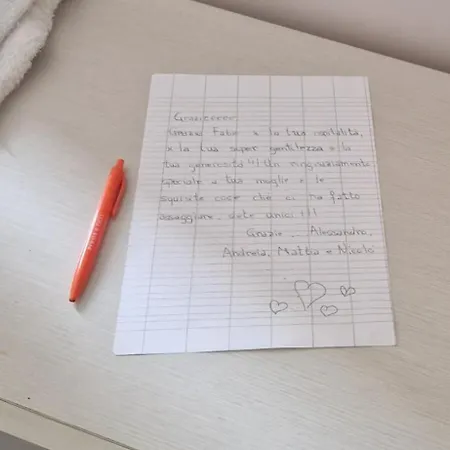 Grazieeeee
Grazie Fabio x la tua ospitalità,
x la tua super gentilezza e la
tua generosità!!! Un ringraziamento
speciale a tua moglie e le
squisite cose che ci ha fatto
assaggiare, siete unici!!!
Grazie, Alessandro,
Andrea, Mattia e Nicolò